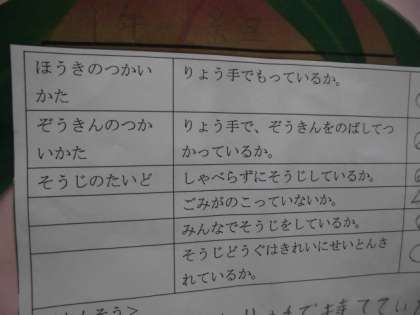 ほうきのつかい
かた
りょう手でもっているか。
ぞうきんのつか
いかた
りょう手で、ぞうきんをのばしてつ
かっているか。
そうじのたいど
しゃべらずにそうじしているか。
ごみがのこっていないか。
みんなでそうじをしているか。
そうじどうぐはきれいにせいとんさ
れているか。